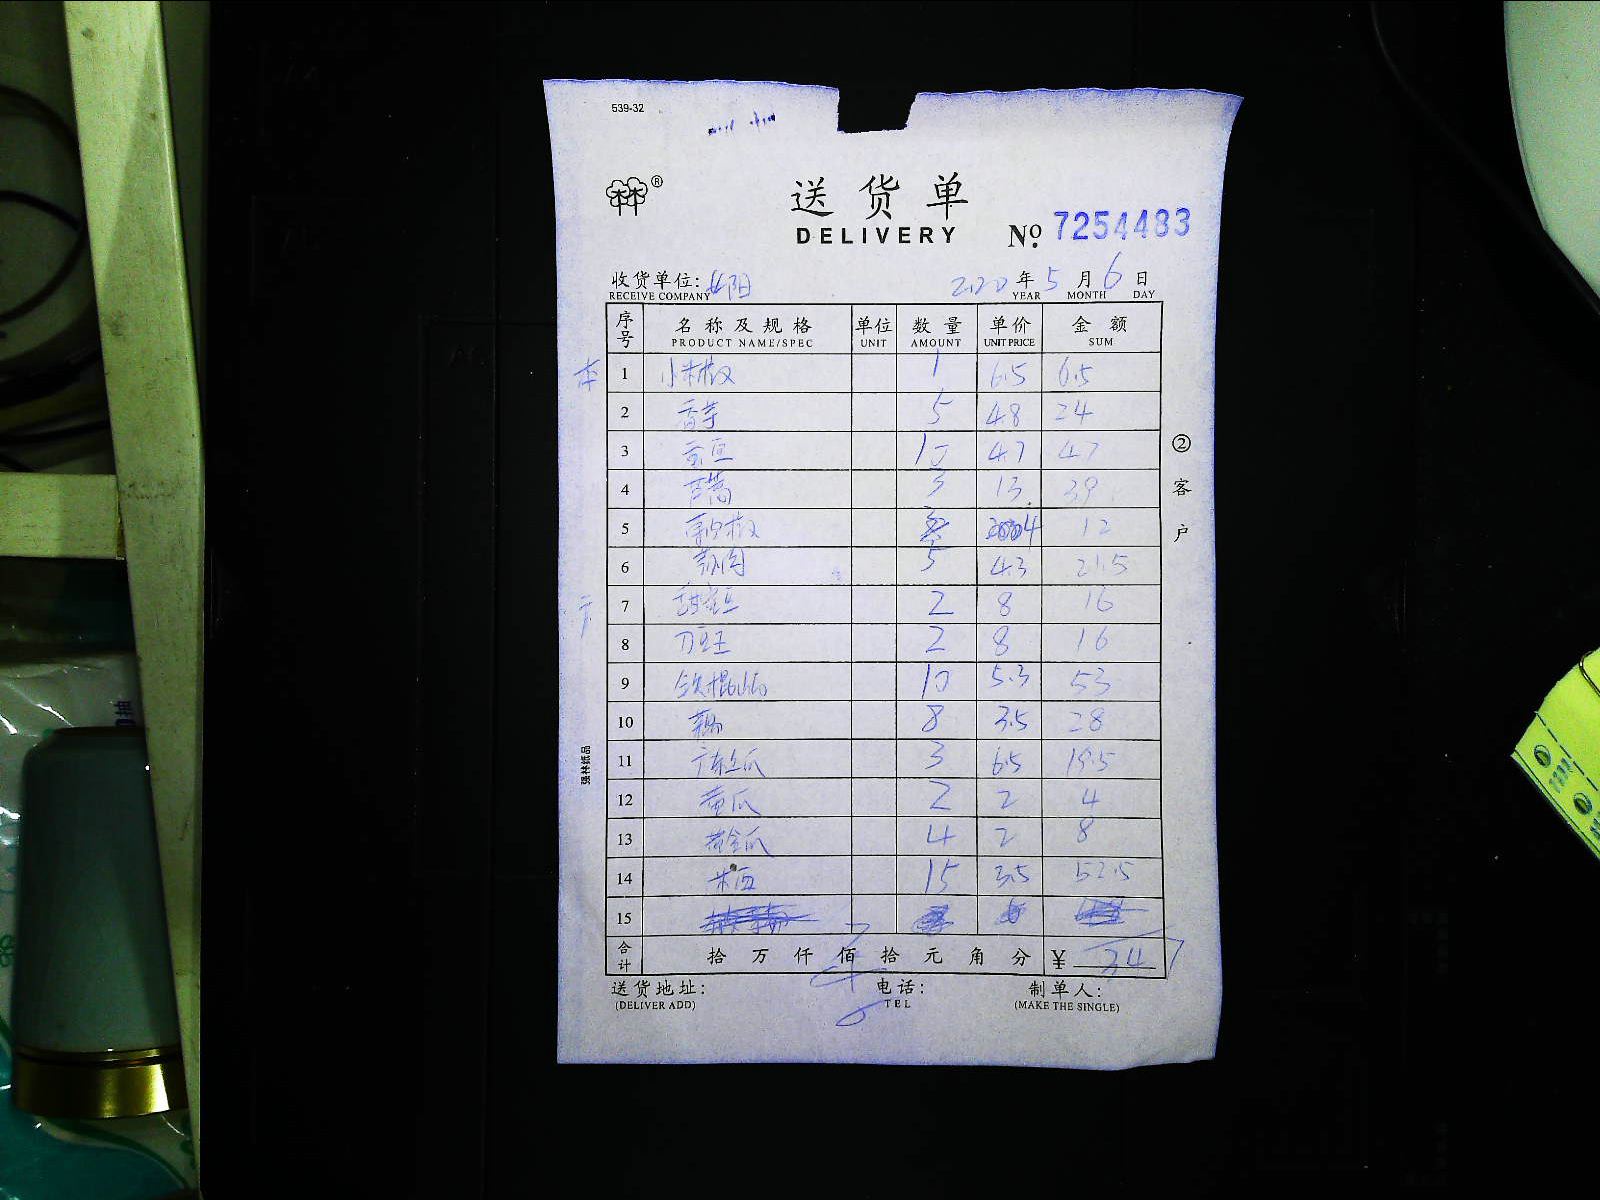 539-32
®
送货单
DELIVERY № 7254483
收货单位: 2020 年 5 月 6 日
RECEIVE COMPANY YEAR MONTH DAY
序号 名称及规格 单位 数量 单价 金额
PRODUCT NAME/SPEC UNIT AMOUNT UNIT PRICE SUM
1 小米椒 1 6.5 6.5
2 香芋 5 4.8 24
3 10 4.7 47
4 3 13 39
5 4 12
6 5 4.3 21.5
7 2 8 16
8 刀豆 2 8 16
9 铁棍山药 10 5.3 53
10 藕 8 3.5 28
11 3 6.5 19.5
12 黄瓜 2 2 4
13 黄金瓜 4 2 8
14 15 3.5 52.5
15
合计 拾 万 仟 佰 拾 元 角 分 ¥ 347
送货地址: 电话: 制单人:
(DELIVER ADD) TEL (MAKE THE SINGLE)
② 客户
强林纸品
抽